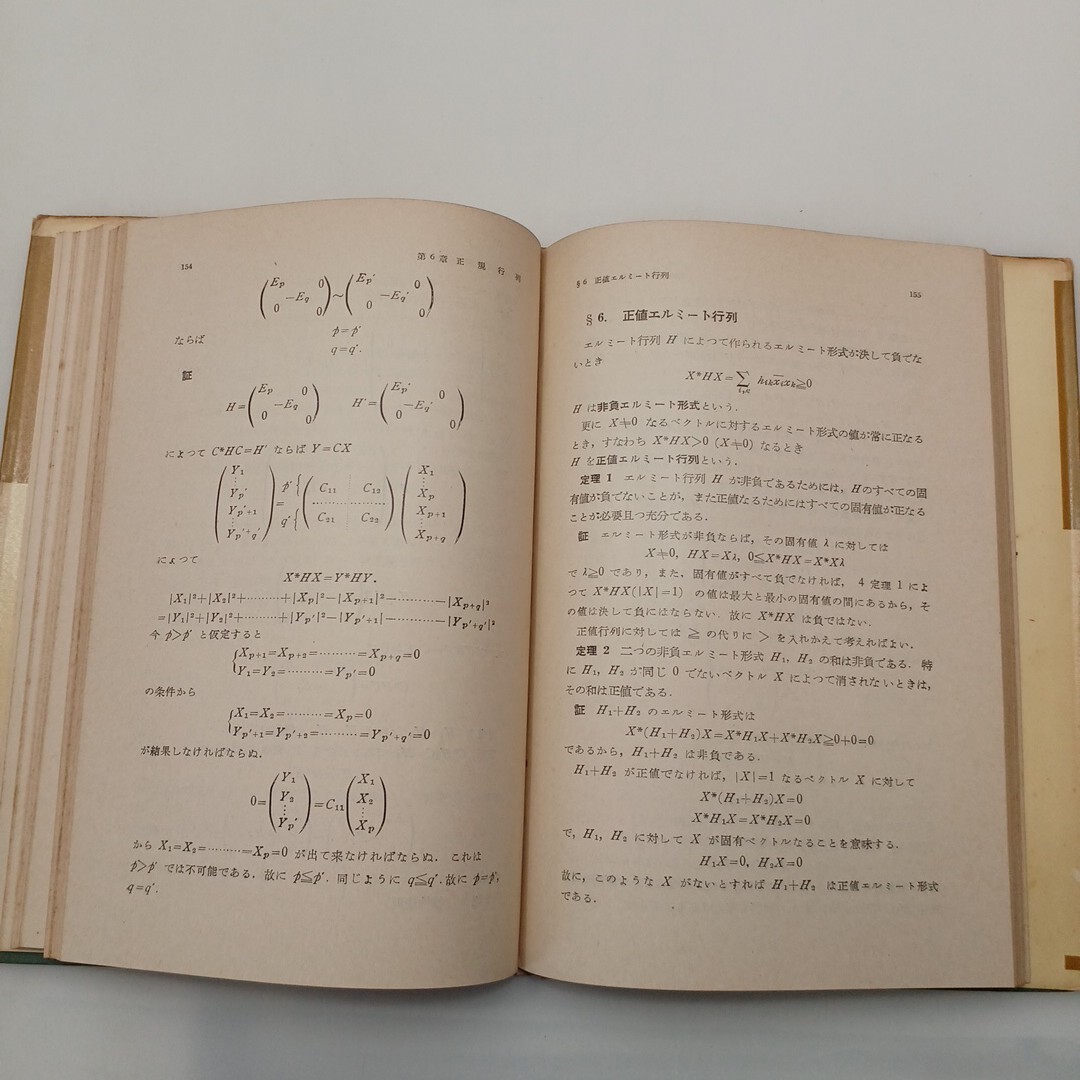 154
第6章 正 規 行 列
(E_p 0 −E_q 0 0) ~ (E_p′ 0 −E_q′ 0 0)
ならば
p=p′
q=q′.
証
H=(E_p 0 −E_q 0 0) H′=(E_p′ 0 −E_q′ 0 0)
によつて C*HC=H′ ならば Y=CX
(Y₁ ⋮ Y_p′ Y_p′+1 ⋮ Y_p′+q′) = p′{ q′{ (C₁₁ C₁₂ C₂₁ C₂₂) (X₁ ⋮ X_p X_p+1 ⋮ X_p+q)
によつて
X*HX=Y*HY.
|X₁|²+|X₂|²+………+|X_p|²−|X_p+1|²−………−|X_p+q|²
=|Y₁|²+|Y₂|²+………+|Y_p′|²−|Y_p′+1|²−………−|Y_p′+q′|²
今 p>p′ と仮定すると
{X_p+1=X_p+2=………=X_p+q=0
Y₁=Y₂=………=Y_p′=0
の条件から
{X₁=X₂=………=X_p=0
Y_p′+1=Y_p′+2=………=Y_p′+q′=0
が結果しなければならぬ.
0=(Y₁ Y₂ ⋮ Y_p′)=C₁₁(X₁ X₂ ⋮ X_p)
から X₁=X₂=………=X_p=0 が出て来なければならぬ. これは
p>p′ では不可能である. 故に p≦p′. 同じように q≦q′. 故に p=p′,
q=q′.
§6 正値エルミート行列
155
§6. 正値エルミート行列
エルミート行列 H によつて作られるエルミート形式が決して負でな
いとき
X*HX=∑ h_ik x̄_i x_k≧0
H は非負エルミート形式という.
更に X≠0 なるベクトルに対するエルミート形式の値が常に正なる
とき, すなわち X*HX>0 (X≠0) なるとき
H を正値エルミート行列という.
定理 1 エルミート行列 H が非負であるためには, Hのすべての固
有値が負でないことが, また正値なるためにはすべての固有値が正なる
ことが必要且つ充分である.
証 エルミート形式が非負ならば, その固有値 λ に対しては
X≠0, HX=Xλ, 0≦X*HX=X*Xλ
で λ≧0 であり, また, 固有値がすべて負でなければ, 4 定理 1 によ
つて X*HX(|X|=1) の値は最大と最小の固有値の間にあるから, そ
の値は決して負にはならない. 故に X*HX は負ではない.
正値行列に対しては ≧ の代りに > を入れかえて考えればよい.
定理 2 二つの非負エルミート形式 H₁, H₂ の和は非負である. 特
に H₁, H₂ が同じ 0 でないベクトル X によつて消されないときは,
その和は正値である.
証 H₁+H₂ のエルミート形式は
X*(H₁+H₂)X=X*H₁X+X*H₂X≧0+0=0
であるから, H₁+H₂ は非負である.
H₁+H₂ が正値でなければ, |X|=1 なるベクトル X に対して
X*(H₁+H₂)X=0
X*H₁X=X*H₂X=0
で, H₁, H₂ に対して X が固有ベクトルなることを意味する.
H₁X=0, H₂X=0
故に, このような X がないとすれば H₁+H₂ は正値エルミート形式
である.